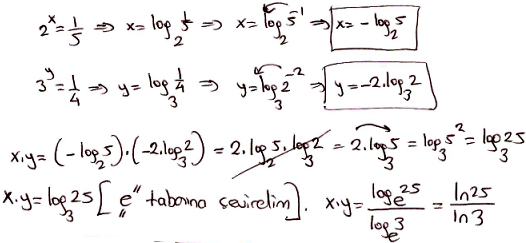 2^x = 1/5 ⇒ x = log_2 1/5 ⇒ x = log_2 5^-1 ⇒ x = -log_2 5
3^y = 1/4 ⇒ y = log_3 1/4 ⇒ y = log_3 2^-2 ⇒ y = -2.log_3 2
x.y = (-log_2 5).(-2.log_3 2) = 2.log_2 5.log_3 2 = 2.log_3 5 = log_3 5^2 = log_3 25
x.y = log_3 25 [ "e" tabanına çevirelim ]. x.y = log_e 25 / log_e 3 = ln25 / ln3